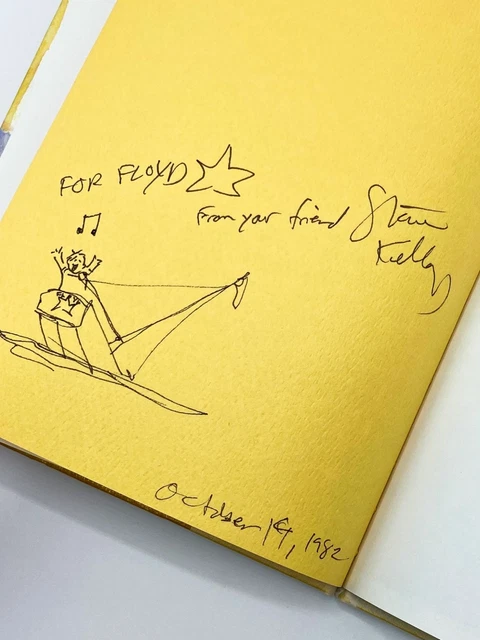 FOR FLOYD
From your friend Steven
Kellogg
October 14, 1982